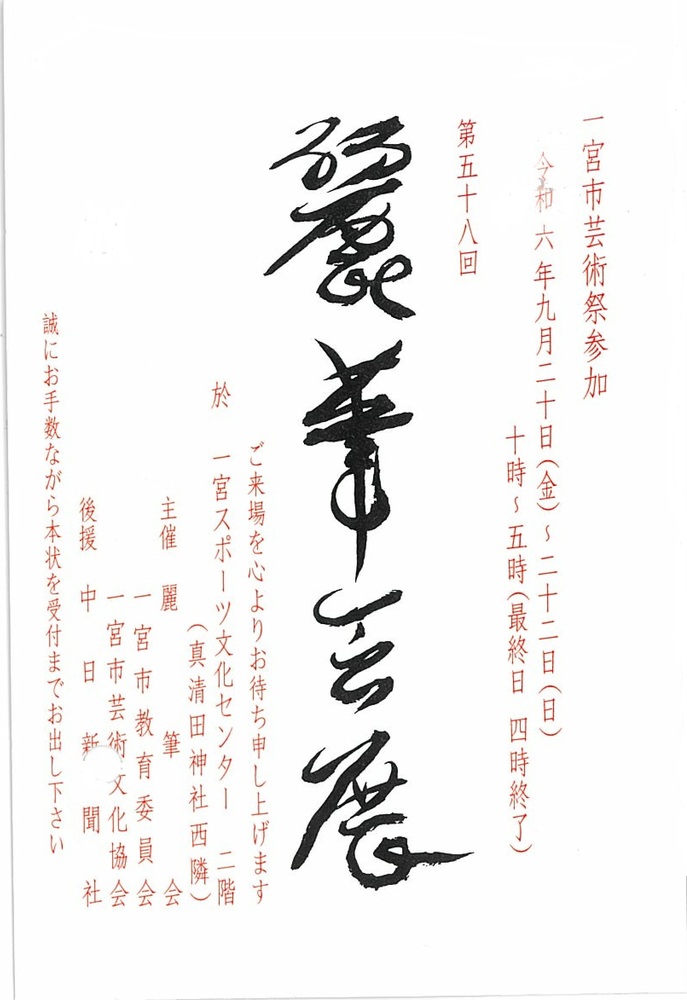 一宮市芸術祭参加
令和六年九月二十日（金）～二十二日（日）
十時～五時（最終日 四時終了）
第五十八回
麗筆会展
ご来場を心よりお待ち申し上げます
於 一宮スポーツ文化センター 二階
（真清田神社西隣）
主催 麗筆会
一宮市教育委員会
一宮市芸術文化協会
後援 中日新聞社
誠にお手数ながら本状を受付までお出し下さい